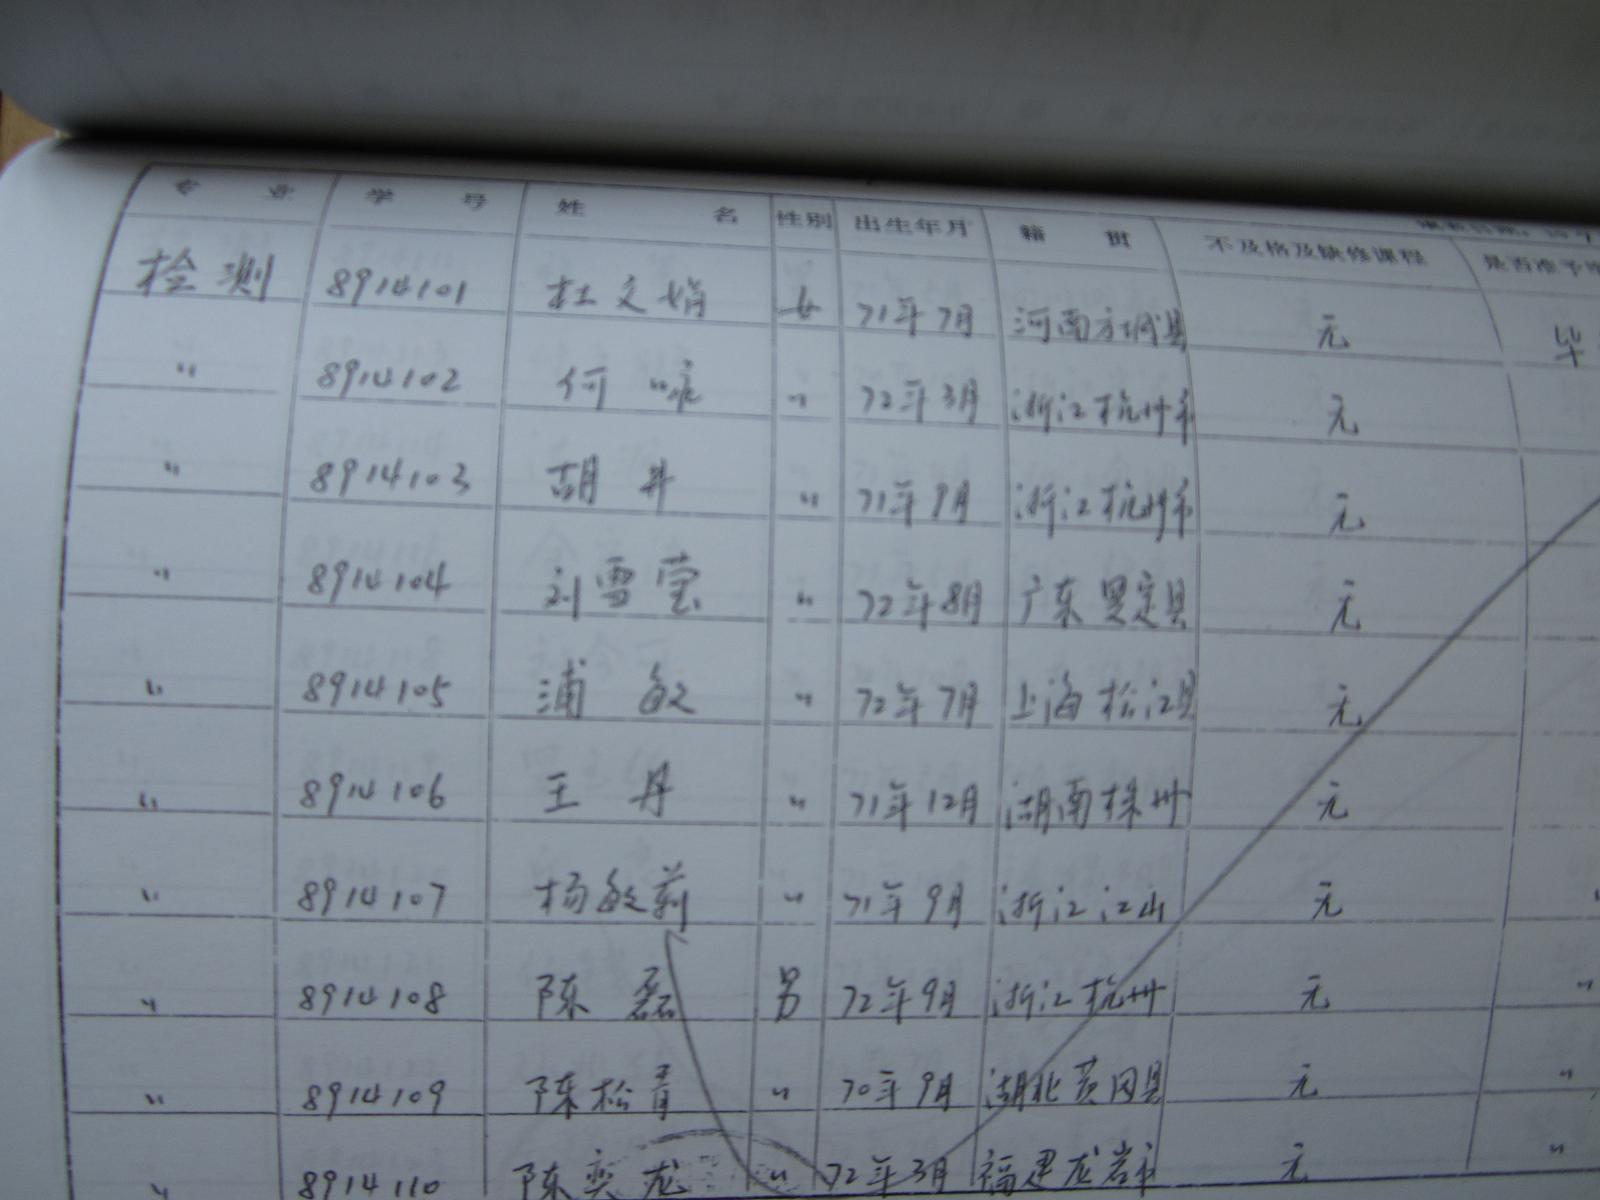 专 业 学 号 姓 名 性别 出生年月 籍 贯 不及格及缺修课程 是否准予
检测 8914101 杜文娟 女 71年7月 河南方城县 无 毕
〃 8914102 何 咏 〃 72年3月 浙江杭州市 无
〃 8914103 胡 丹 〃 71年9月 浙江杭州市 无
〃 8914104 刘雪莹 〃 72年8月 广东 县 无
〃 8914105 浦 敏 〃 72年7月 上海松江县 无
〃 8914106 王 丹 〃 71年12月 湖南株州 无
〃 8914107 杨敏莉 〃 71年9月 浙江江山 无 〃
〃 8914108 陈 磊 男 72年9月 浙江杭州 无 〃
〃 8914109 陈松青 〃 70年9月 湖北黄冈县 无 〃
〃 8914110 陈奕龙 〃 72年3月 福建龙岩市 无 〃